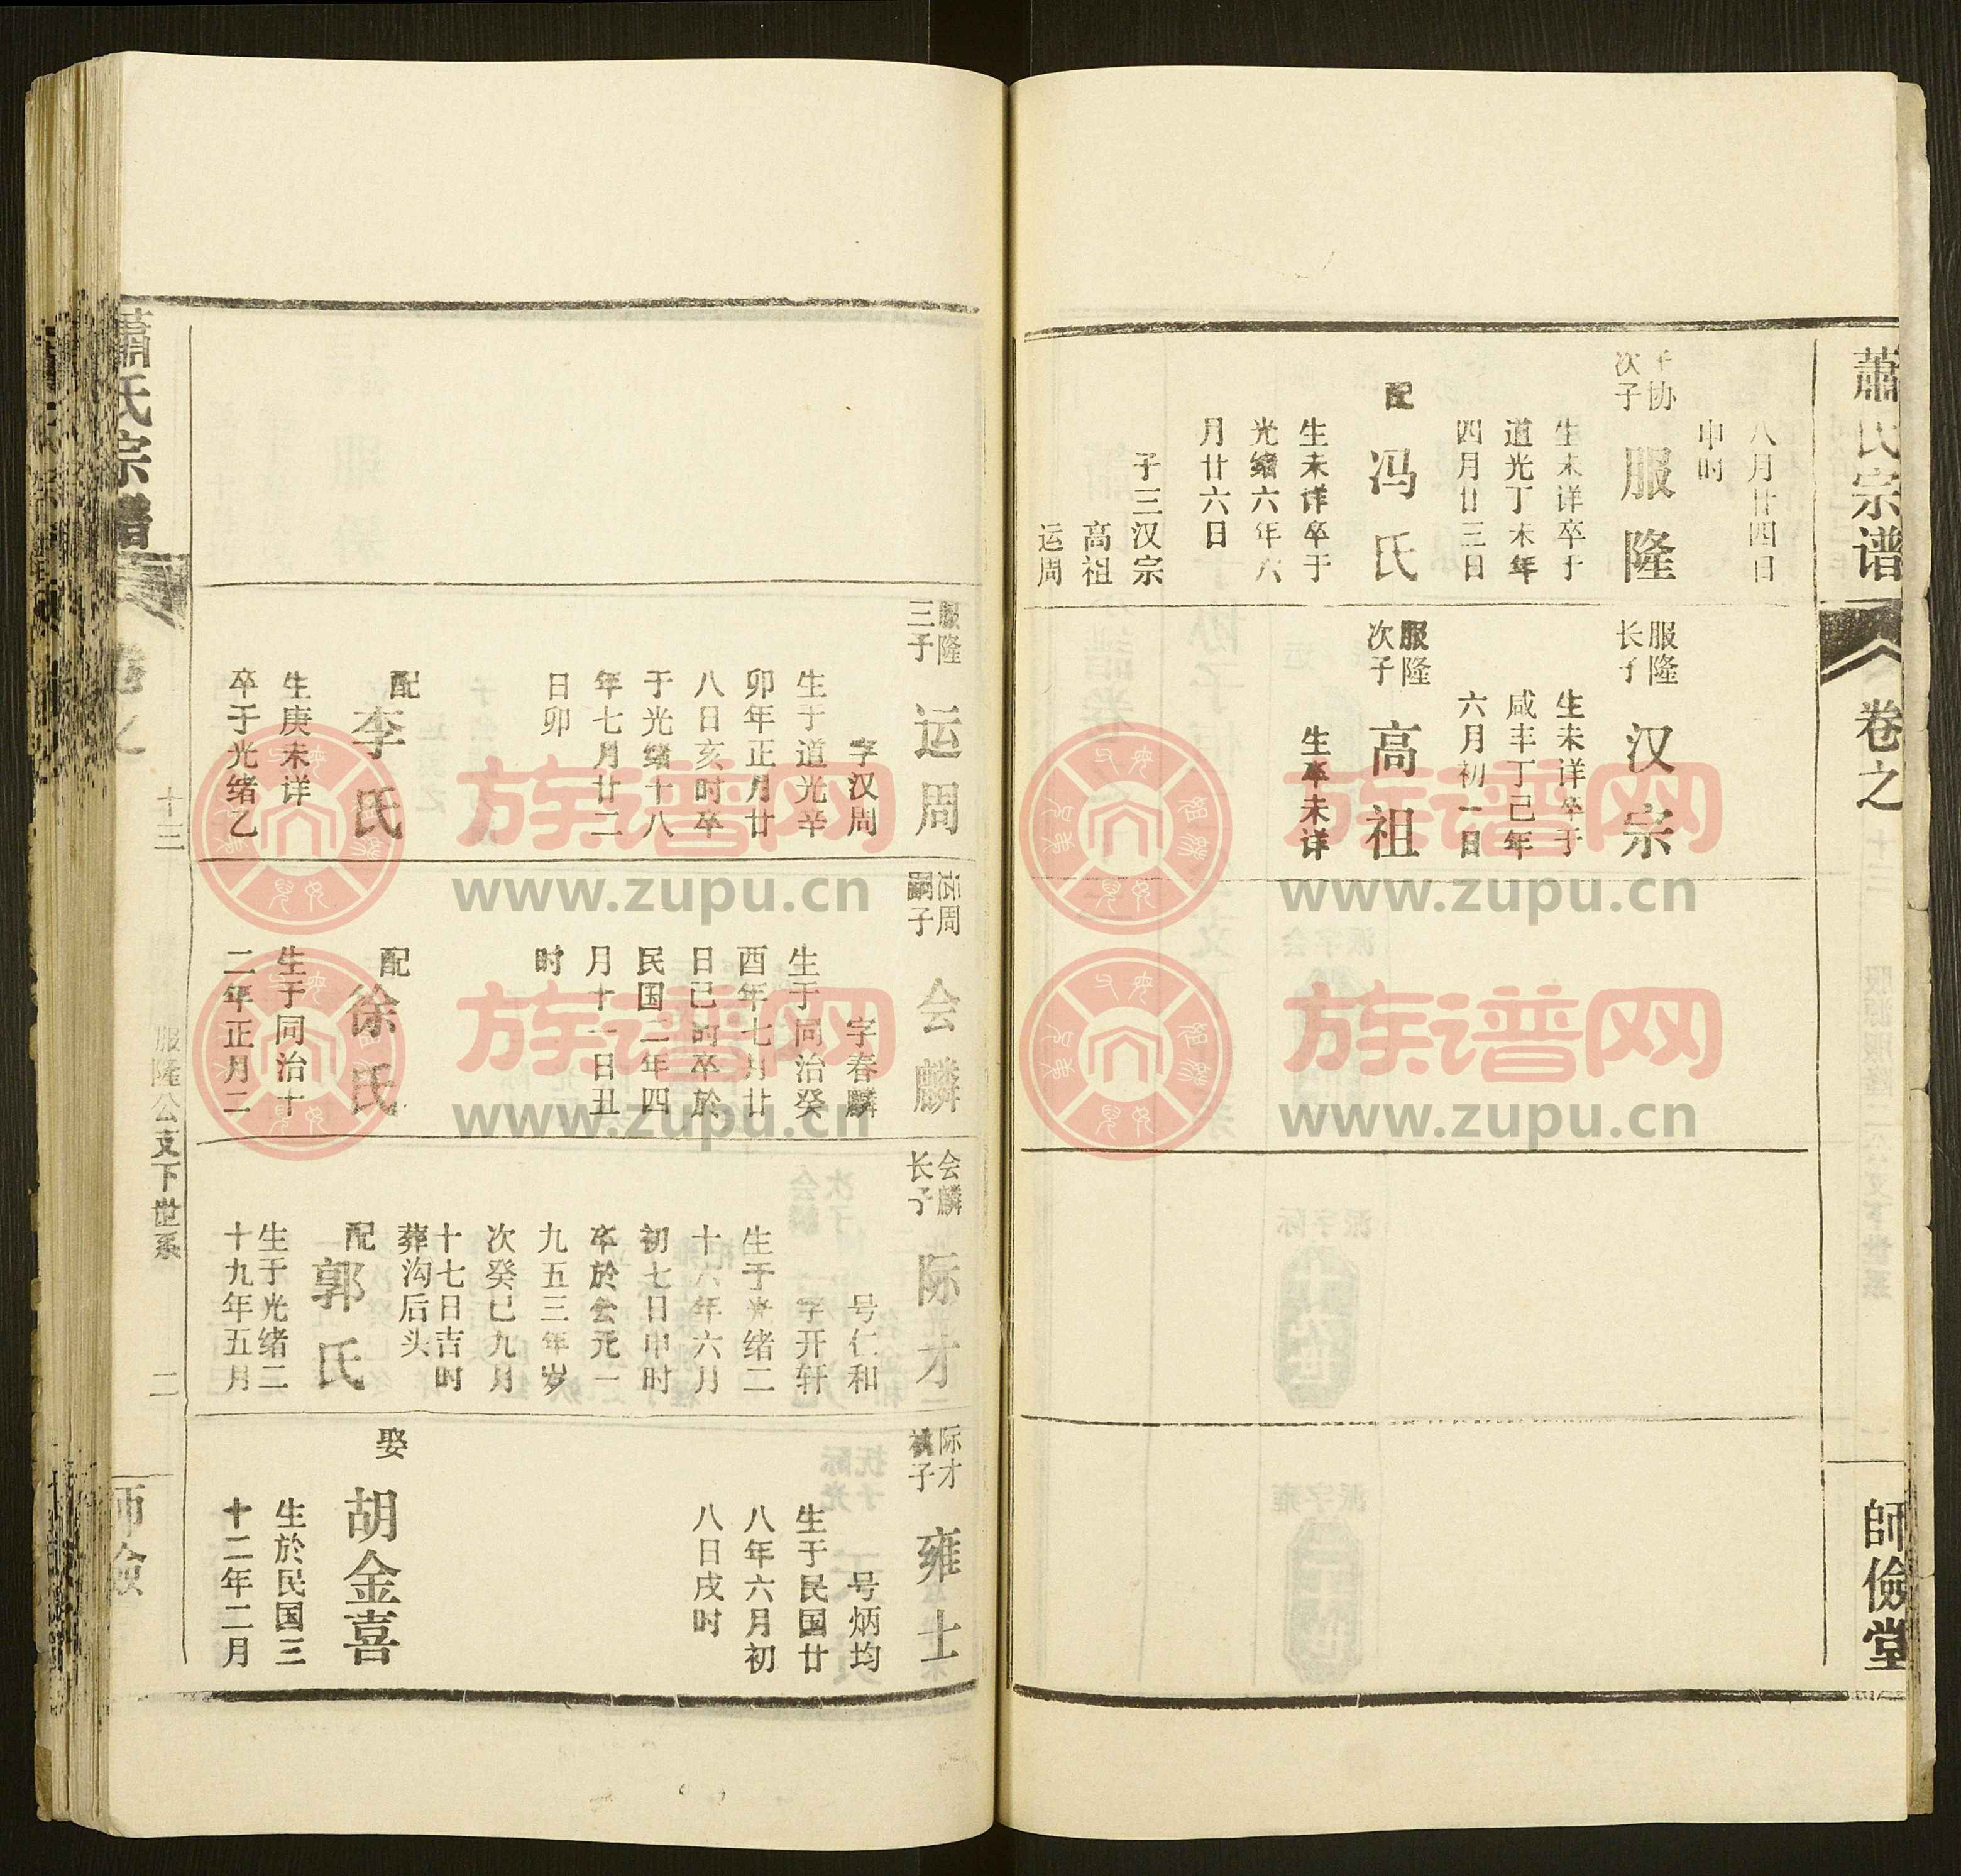 蕭氏宗谱
卷之
師儉堂
八月廿四日
申时
子协
次子
服隆
生未详卒于
道光丁未年
四月廿三日
配
冯氏
生未详卒于
光绪六年六
月廿六日
子三汉宗
高祖
运周
服隆
长子
汉宗
生未详卒于
咸丰丁己年
六月初一日
服隆
次子
高祖
生卒未详
服隆
三子
运周
字汉周
生于道光辛
卯年正月廿
八日亥时卒
于光绪十八
年七月廿二
日卯
配
李氏
生庚未详
卒于光绪乙
运周
嗣子
会麟
字春麟
生于同治癸
酉年七月廿
日已时卒於
民国二年四
月十一日丑
时
配
徐氏
生于同治十
二年正月二
会麟
长子
际才
号仁和
字开轩
生于光绪二
十六年六月
初七日申时
卒於公元一
九五三年岁
次癸已九月
十七日吉时
葬沟后头
配
郭氏
生于光绪二
十九年五月
际才
子
雍士
号炳均
生于民国廿
八年六月初
八日戌时
娶
胡金喜
生於民国三
十二年二月
蕭氏宗谱
卷之
十三
服隆公支下世系
二
师俭
族谱网
www.zupu.cn
族谱网
www.zupu.cn
族谱网
www.zupu.cn
族谱网
www.zupu.cn